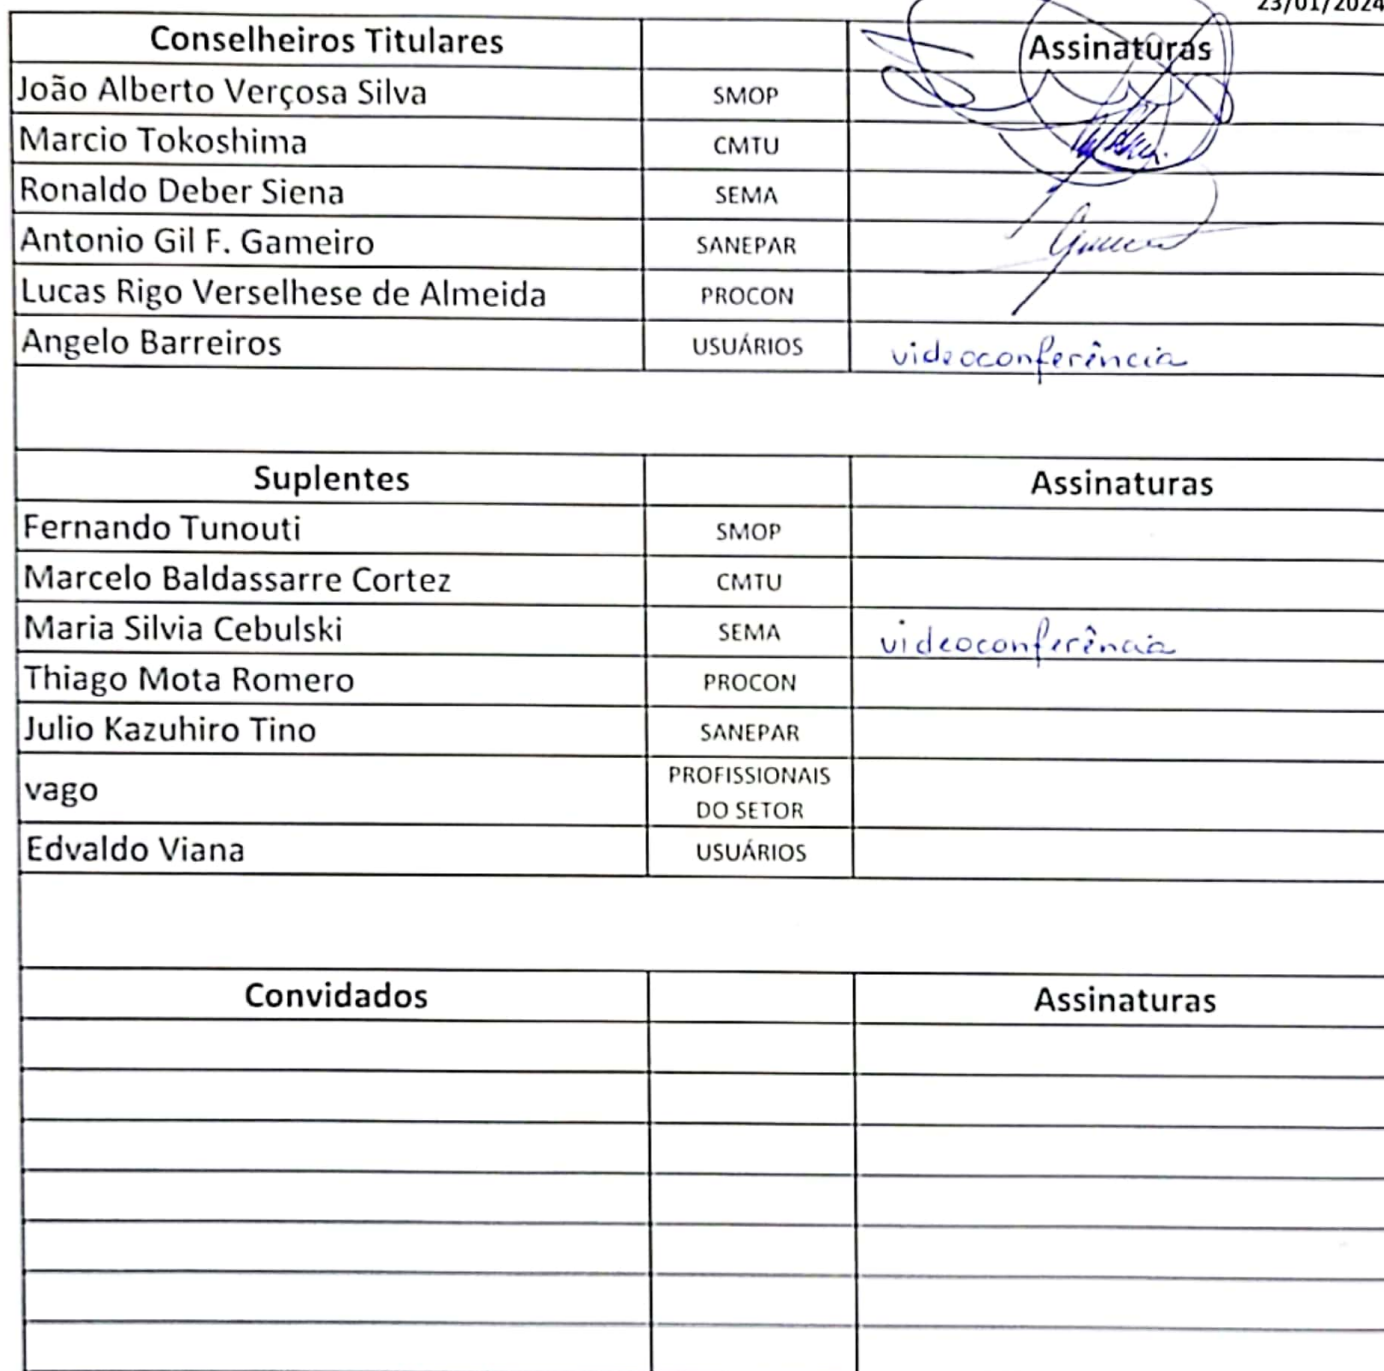 23/01/2024
Conselheiros Titulares Assinaturas
João Alberto Verçosa Silva SMOP
Marcio Tokoshima CMTU
Ronaldo Deber Siena SEMA
Antonio Gil F. Gameiro SANEPAR
Lucas Rigo Verselhese de Almeida PROCON
Angelo Barreiros USUÁRIOS videoconferência
Suplentes Assinaturas
Fernando Tunouti SMOP
Marcelo Baldassarre Cortez CMTU
Maria Silvia Cebulski SEMA videoconferência
Thiago Mota Romero PROCON
Julio Kazuhiro Tino SANEPAR
vago PROFISSIONAIS
DO SETOR
Edvaldo Viana USUÁRIOS
Convidados Assinaturas